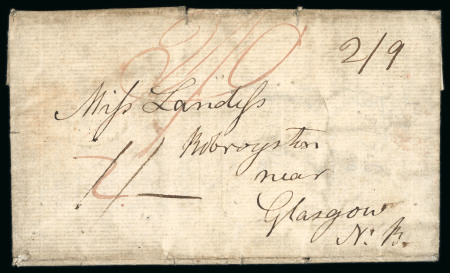 2/9
Miss Landess
Robroyston
1/-
near
Glasgow
N. B.